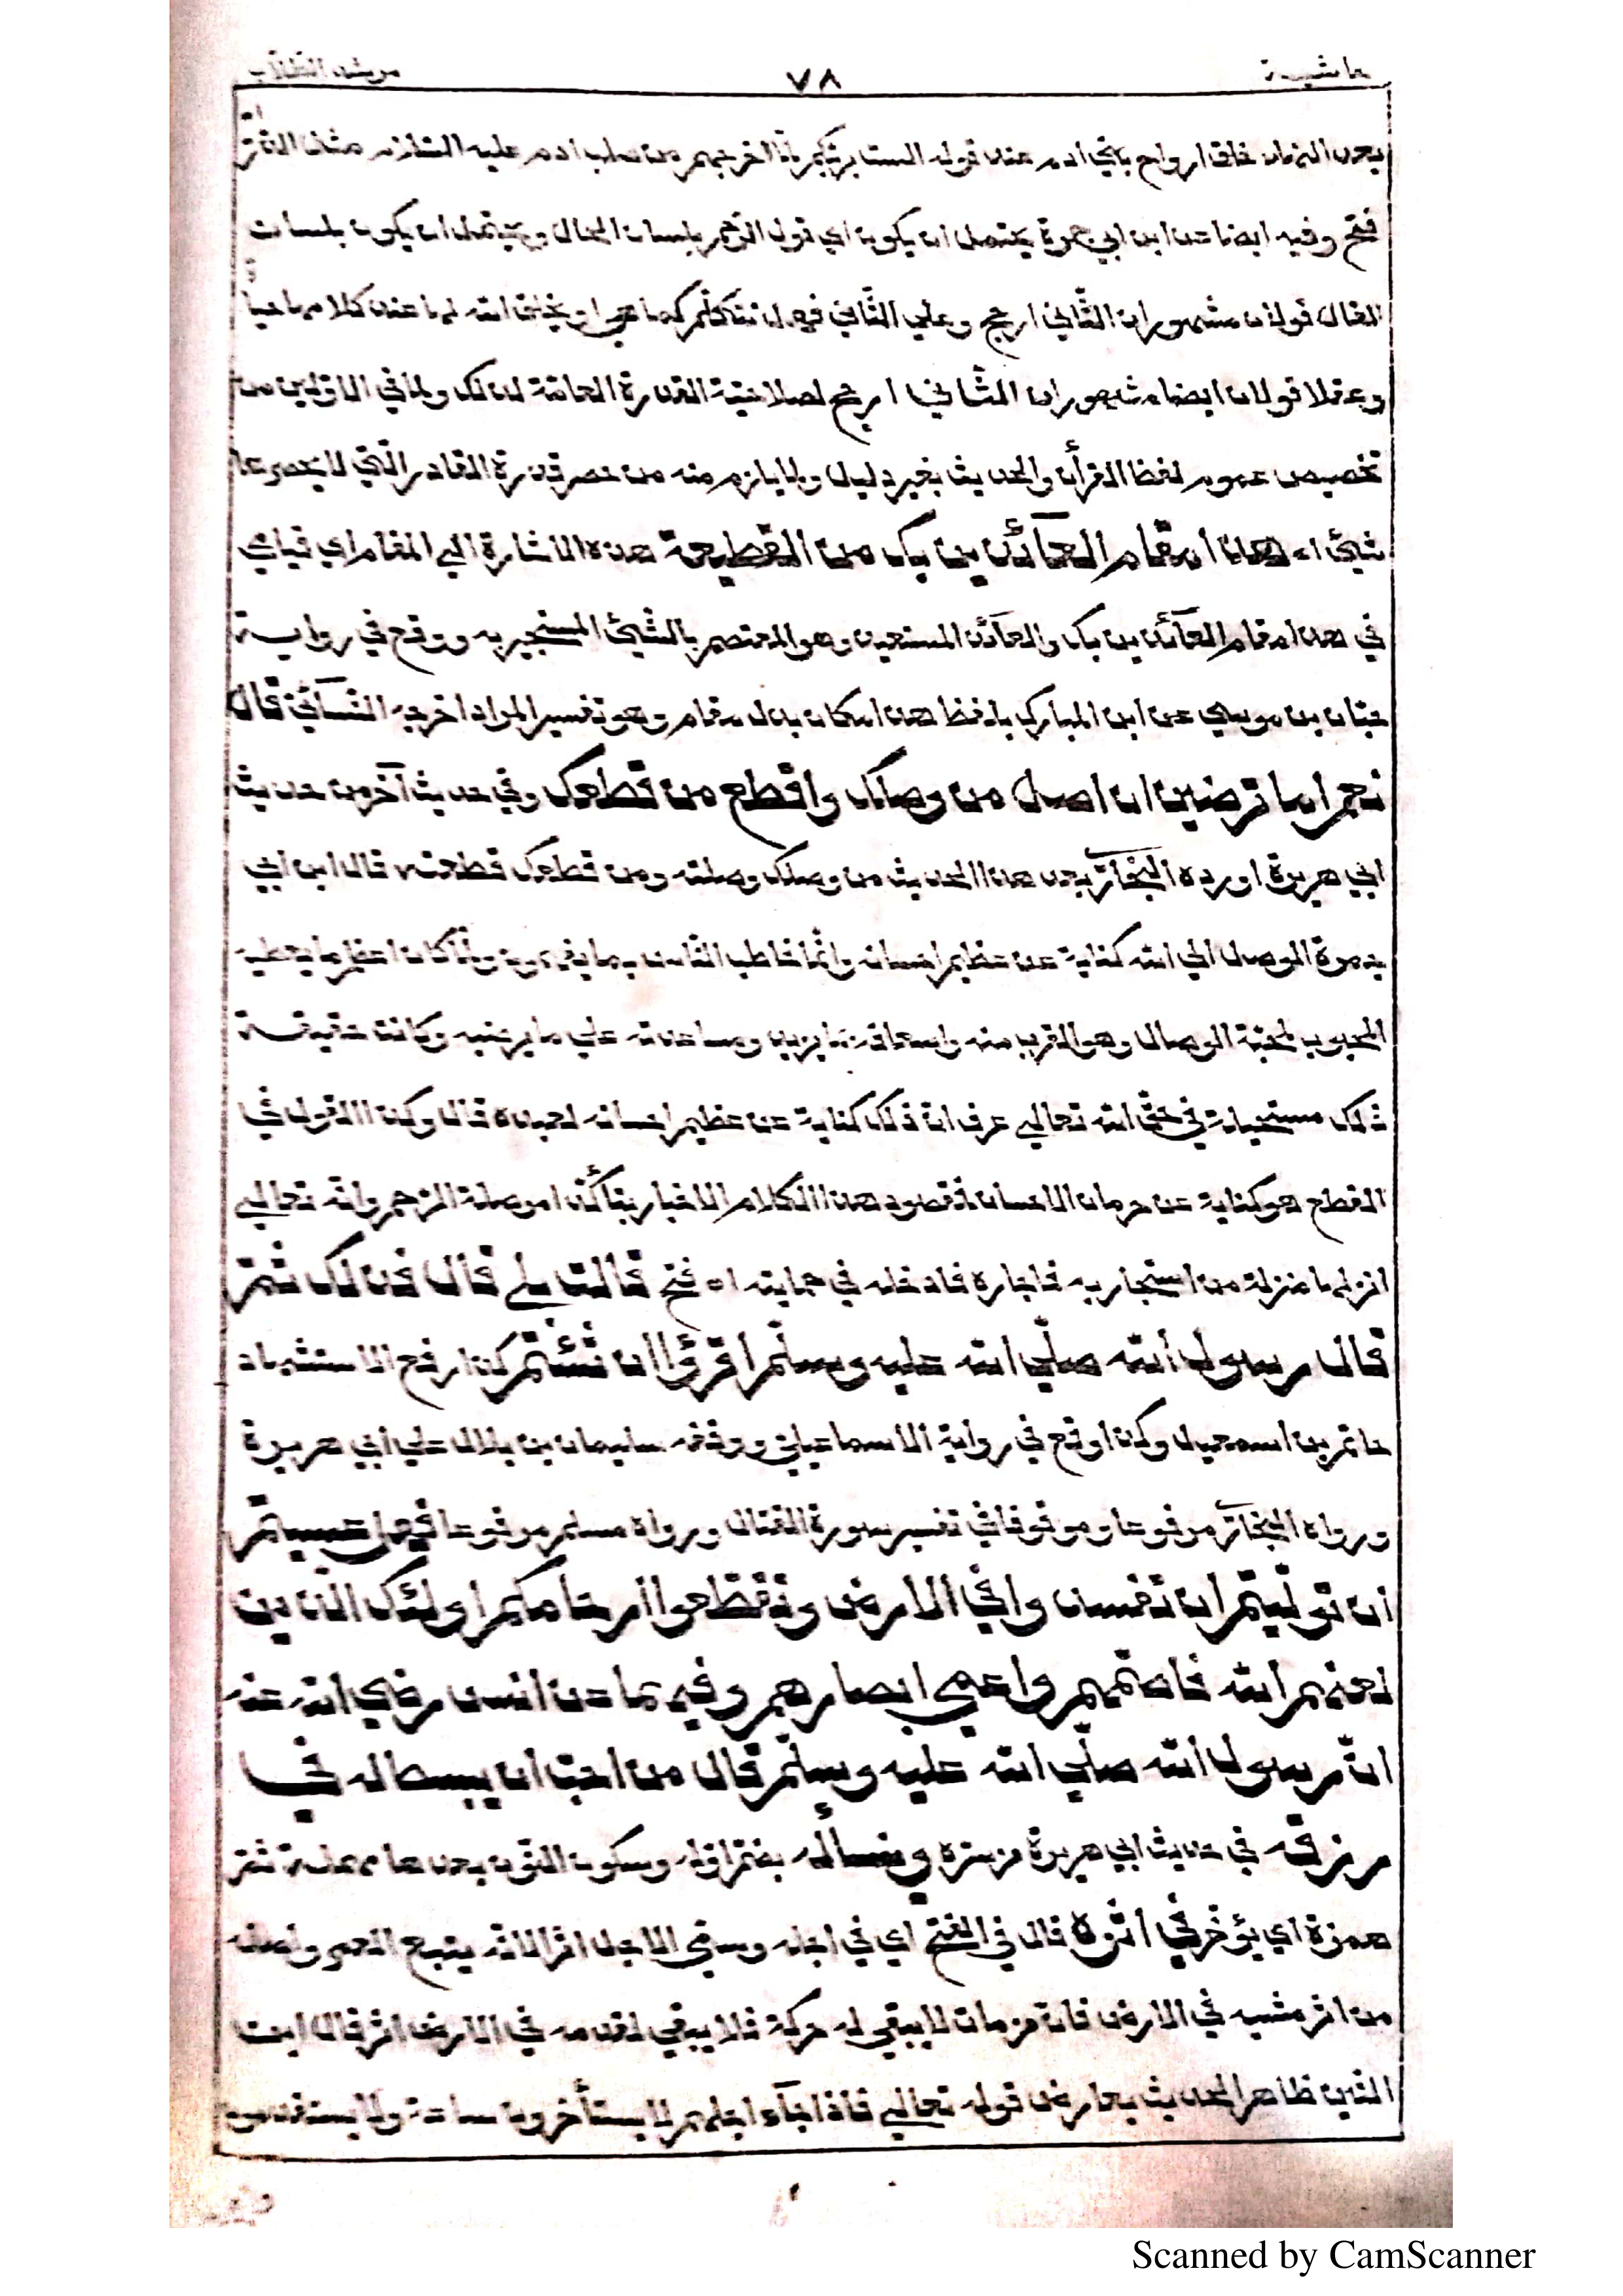 حاشية ٧٨ مرشد الطلاب
بعد انتهاء خلق ارواح بني ادم عند قوله الست بربكم لما اخرجهم من صلب ادم عليه السلام مثل الذر
فتح وفيه ايضا عن ابن ابي جمرة يحتمل ان يكون اي قول الرحم بلسان الحال ويحتمل ان يكون بلسان
القال قولان مشهوران الثاني ارجح وعلى الثاني فهل تتكلم كما هي او يخلق الله لها عند كلامها حياة
وعقلا قولان ايضا مشهوران الثاني ارجح لصلاحية القدرة العامة لذلك ولما في الاولين من
تخصيص عموم لفظ القرأن والحديث بغير دليل ولما يلزم منه من حصر قدرة القادر التي لا يحصرها
شيئ اه هذا مقام العآئذين بك من القطيعة هذه الاشارة الي المقام اي قيامي
في هذا مقام العآئذين بك والعآئذ المستعيذ وهو المعتصم بالشيئ المستجير به ووقع في رواية
حبان بن موسي عن ابن المبارك بلفظ هذا مكان بدل مقام وهو تفسير المراد اخرجه النسآئي قال
نعم اما ترضين ان اصل من وصلك واقطع من قطعك وفي حديث آخر من حديث
ابي هريرة اورده البخاري بعد هذا الحديث من وصلك وصلته ومن قطعك قطعته قال ابن ابي
جمرة الوصل الي الله كناية عن عظيم احسانه وانما خاطب الناس بما يفهمون ولما كان اعظم ما يعطيه
المحبوب لمحبه الوصال وهو القرب منه واسعافه بما يريد ومساعدته علي ما يرضيه وكانت حقيقة
ذلك مستحيلة في حق الله تعالي عرف ان ذلك كناية عن عظيم احسانه لعبده قال وكذا القول في
القطع هو كناية عن حرمان الاحسان فمقصود هذا الكلام الاخبار بتأكد امر صلة الرحم وانه تعالي
انزلها منزلة من استجار به فاجاره فادخله في حمايته اه فتح قالت بلي قال فذلك ثم
قال رسول الله صلي الله عليه وسلم اقرؤا ان شئتم كذا رفع الاستشهاد
حاتم بن اسمعيل وكذا وقع في رواية الاسماعيلي ووقفه سليمان بن بلال علي ابي هريرة
ورواه البخاري مرفوعا وموقوفا في تفسير سورة القتال ورواه مسلم مرفوعا فهل عسيتم
ان توليتم ان تفسدوا في الارض وتقطعوا ارحامكم اولئك الذين
لعنهم الله فاصمهم واعمي ابصارهم وفيهما عن انس رضي الله عنه
ان رسول الله صلي الله عليه وسلم قال من احب ان يبسط له في
رزقه في حديث ابي هريرة من سره وينسأله بضم اوله وسكون النون بعدها مهملة ثم
همزة اي يؤخر في اثره قال في الفتح اي في اجله وسمي الاجل اثرا لانه يتبع العمر واصله
من اثر مشيه في الارض فان من مات لا يبقي له حركة فلا يبقي لقدمه في الارض اثر قال ابن
التين ظاهر الحديث يعارض قوله تعالي فاذا جآء اجلهم لا يستأخرون ساعة ولا يستقدمون
Scanned by CamScanner